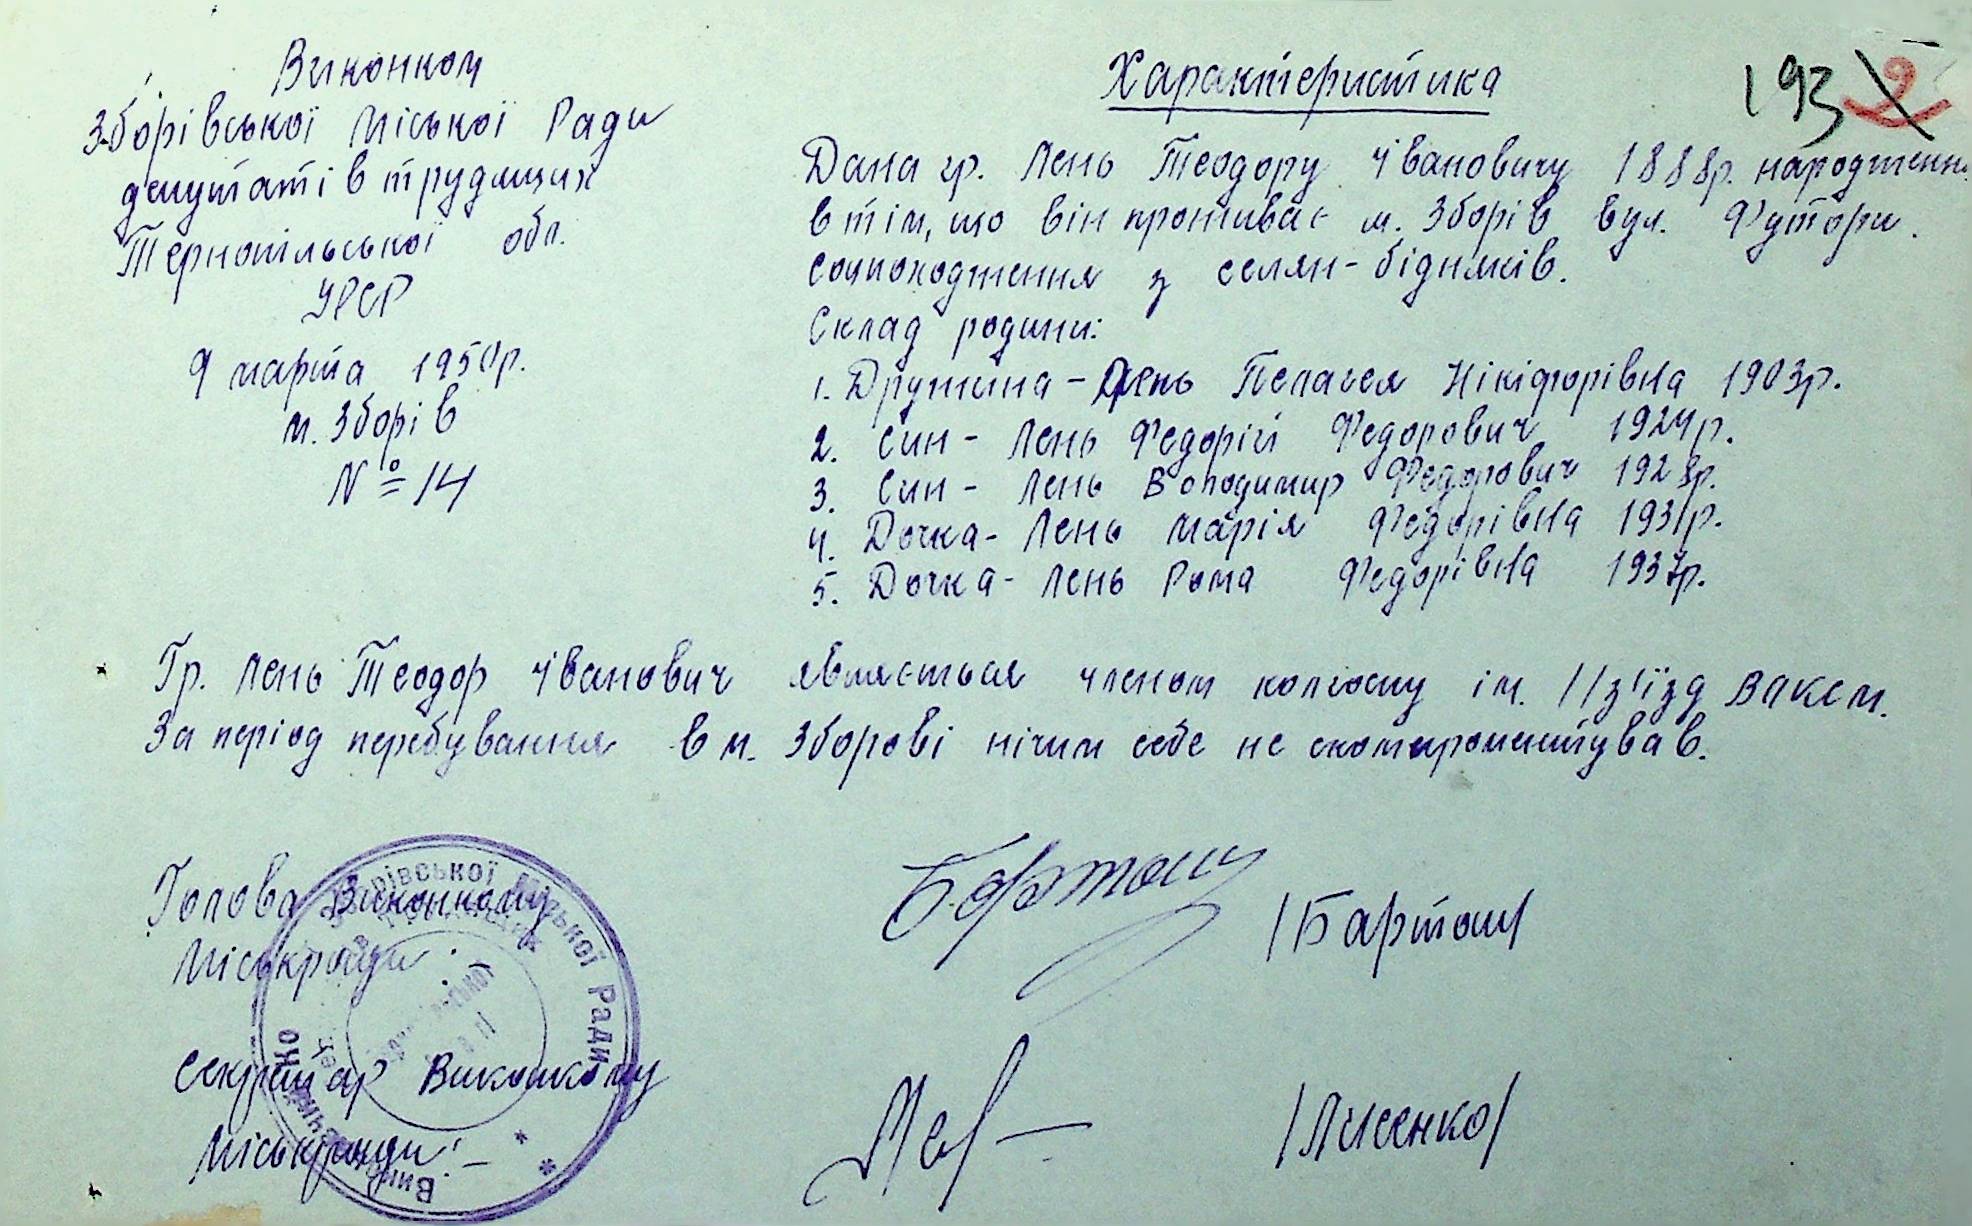 Виконком
Зборівської Міської Ради
депутатів трудящих
Тернопільської обл.
УРСР
9 марта 1950р.
м. Зборів
№ 14
Характеристика
193
2
Дана гр. Лень Теодору Івановичу 1888р. народженн.
в тім, що він проживає м. Зборів вул. Футори.
Соцпоходження з селян-бідняків.
Склад родини:
1. Дружина - Лень Пелагея Нікіфорівна 1903р.
2. Син - Лень Федорій Федорович 1924р.
3. Син - Лень Володимир Федорович 1928р.
4. Дочка - Лень Марія Федорівна 1931р.
5. Дочка - Лень Рома Федорівна 1937р.
Гр. Лень Теодор Іванович являється членом колгоспу ім. 11 з'їзд ВЛКСМ.
За період перебування в м. Зборові нічим себе не скомпроментував.
Голова Виконкому
Міськради: -
/Бартош/
Секретар Виконкому
Міськради: -
/Лисенко/
Зборівської Міської Ради